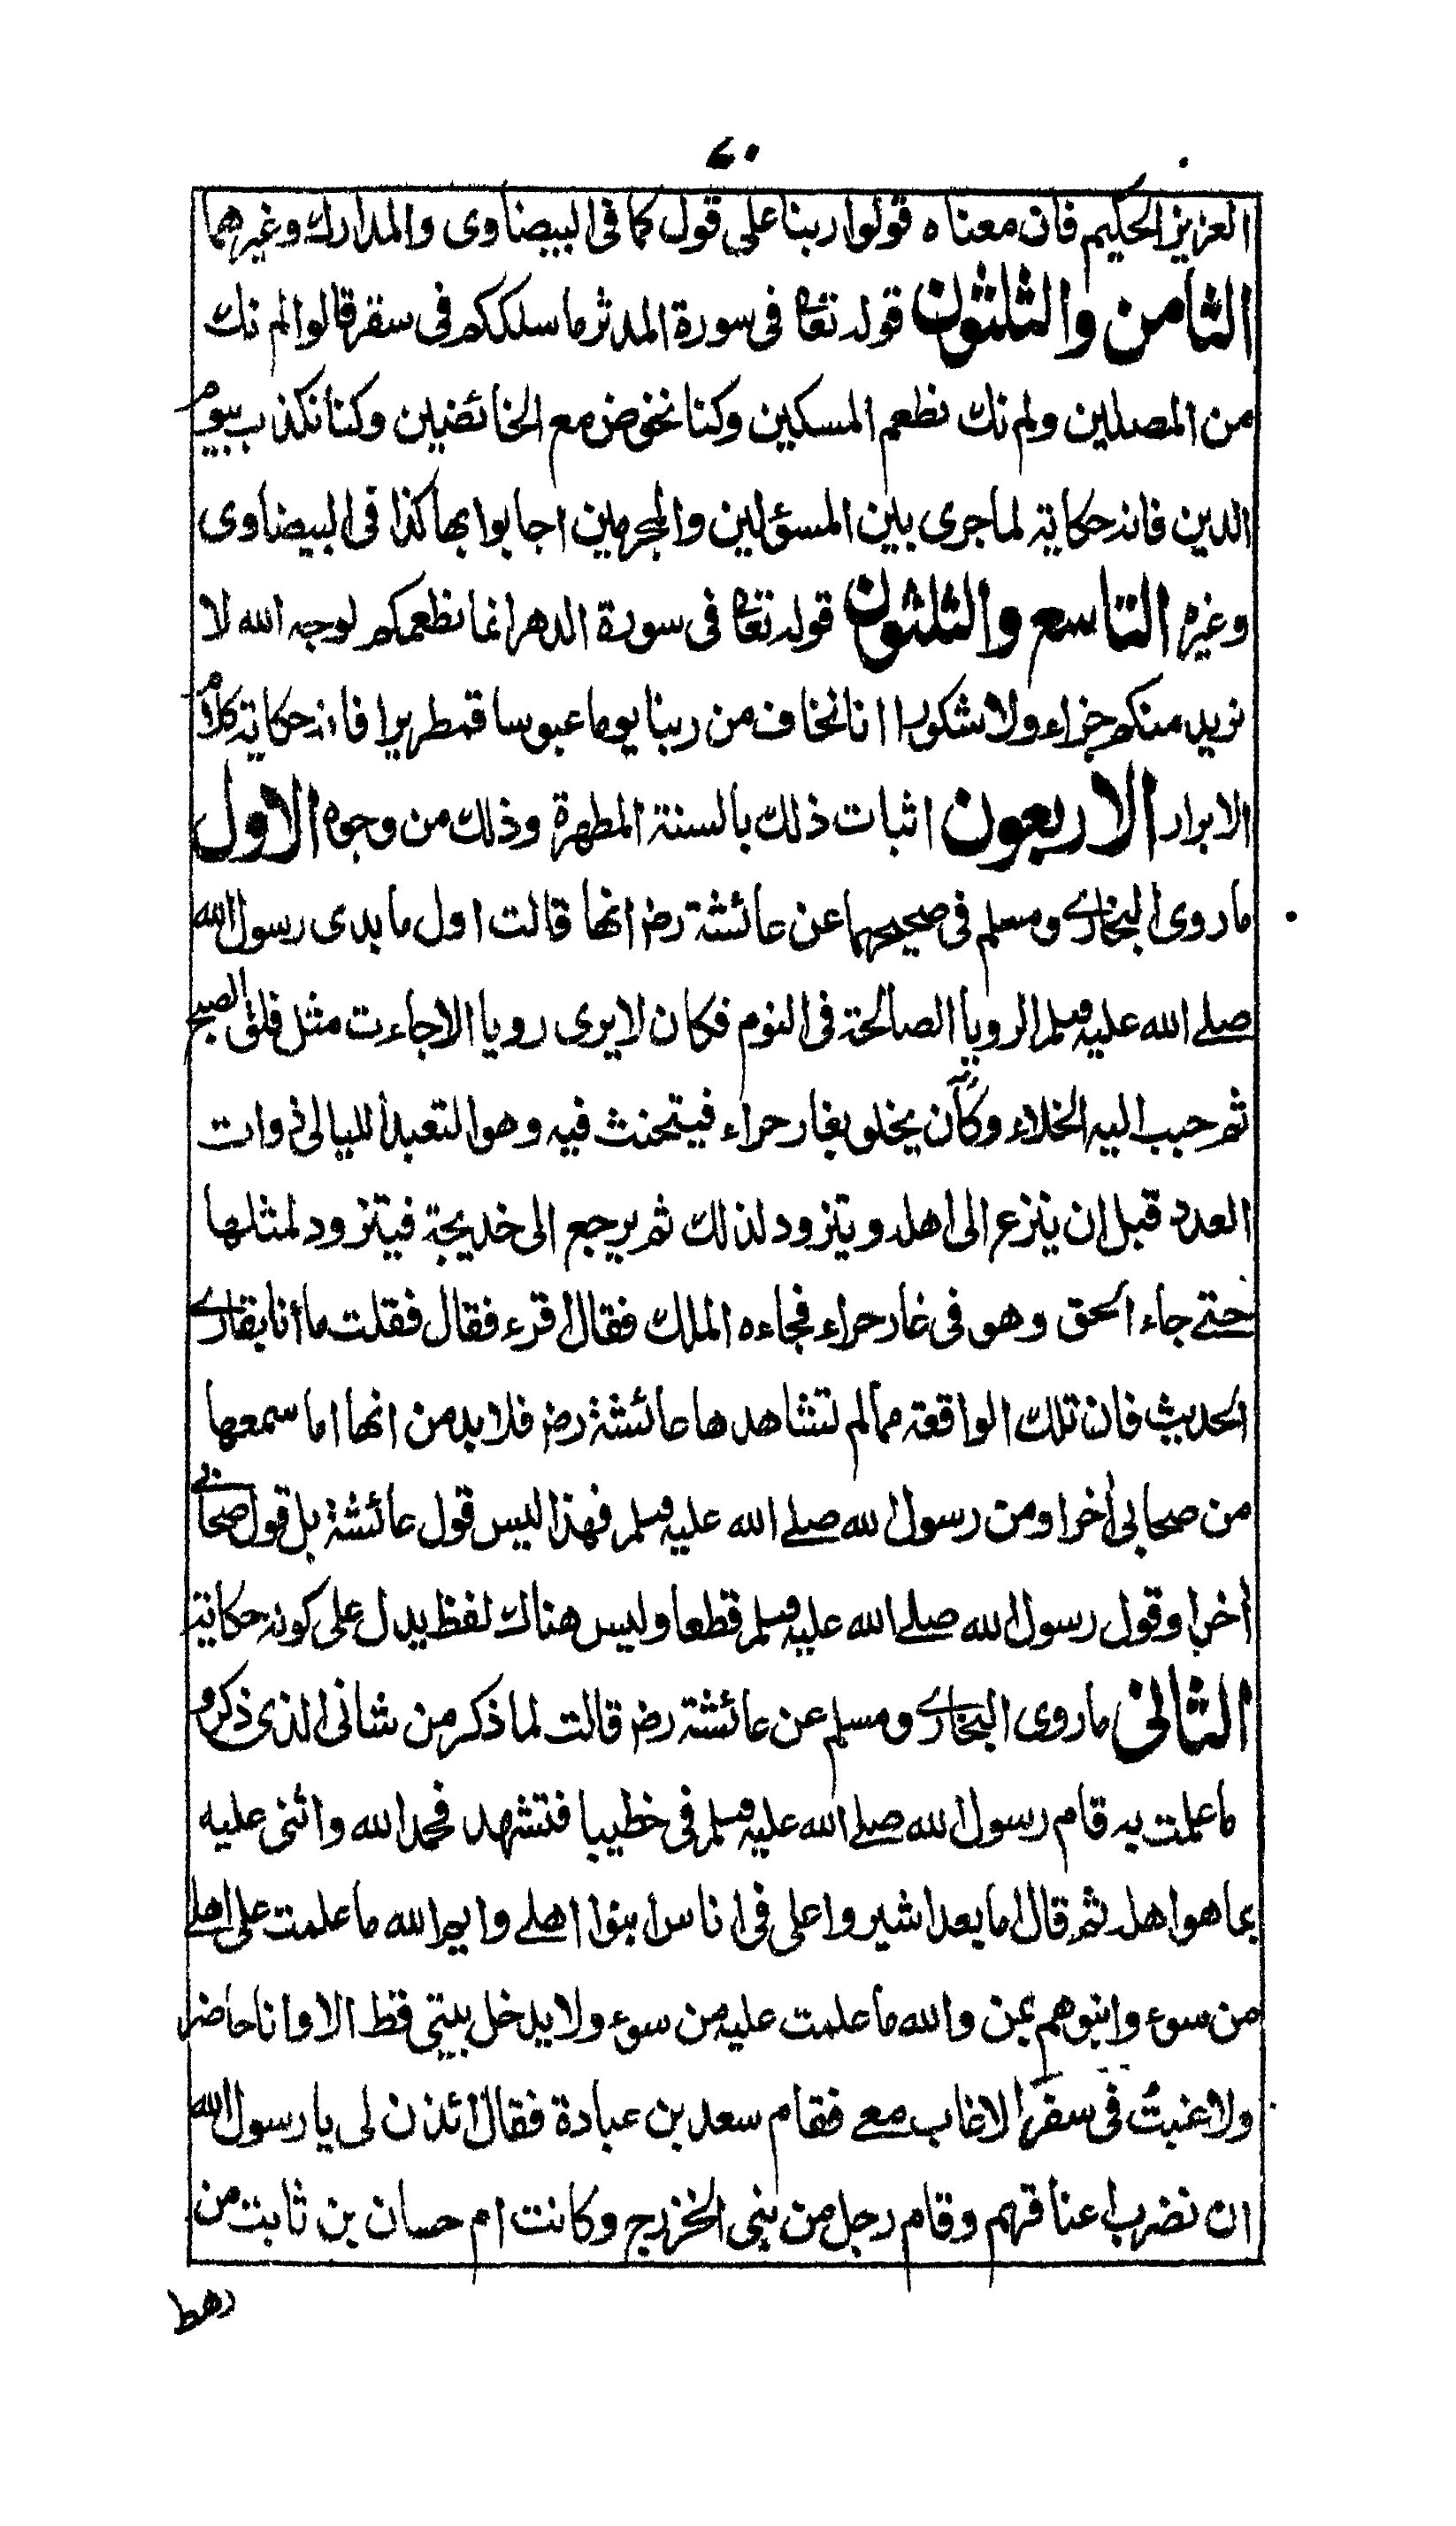 ٧٠
العزيز الحكيم فان معناه قولوا ربنا على قول كما فى البيضاوى والمدارك وغيرهما
الثامن والثلثون قوله تعالى فى سورة المدثر ما سلككم فى سقر قالوا لم نك
من المصلين ولم نك نطعم المسكين وكنا نخوض مع الخائضين وكنا نكذب بيوم
الدين فانه حكاية لما جرى بين المسؤلين والمجرمين اجابوا بها كذا فى البيضاوى
وغيره التاسع والثلثون قوله تعالى فى سورة الدهر انما نطعمكم لوجه الله لا
نريد منكم جزاء ولا شكورا انا نخاف من ربنا يوما عبوسا قمطريرا فانه حكاية كلام
الابرار الاربعون اثبات ذلك بالسنة المطهرة وذلك من وجوه الاول
ما روى البخارى ومسلم فى صحيحيهما عن عائشة رض انها قالت اول ما بدى رسول الله
صلى الله عليه وسلم الرويا الصالحة فى النوم فكان لا يرى رويا الا جاءت مثل فلق الصبح
ثم حبب اليه الخلاء وكان يخلو بغار حراء فيتحنث فيه وهو التعبد الليالى ذوات
العدد قبل ان ينزع الى اهله ويتزود لذلك ثم يرجع الى خديجة فيتزود لمثلها
حتى جاء الحق وهو فى غار حراء فجاءه الملك فقال اقرء فقال فقلت ما أنا بقارى
الحديث فان تلك الواقعة مما لم تشاهدها عائشة رض فلا بد من انها اما سمعها
من صحابى أخر او من رسول الله صلى الله عليه وسلم فهذا ليس قول عائشة بل قول صحابى
أخر او قول رسول الله صلى الله عليه وسلم قطعا وليس هناك لفظ يدل على كونه حكاية
الثانى ما روى البخارى ومسلم عن عائشة رض قالت لما ذكر من شانى الذى ذكر و
ما علمت به قام رسول الله صلى الله عليه وسلم فى خطيبا فتشهد فحمد الله واثنى عليه
بما هو اهله ثم قال اما بعد اشيروا على فى اناس ابنوا اهلى وايم الله ما علمت على اهلى
من سوء وابنوهم بمن والله ما علمت عليه من سوء ولا يدخل بيتى قط الا وانا حاضر
ولا غبتُ فى سفر الا غاب معى فقام سعد بن عبادة فقال ائذن لى يا رسول الله
ان نضرب اعناقهم وقام رجل من بنى الخزرج وكانت ام حسان بن ثابت من
رهط